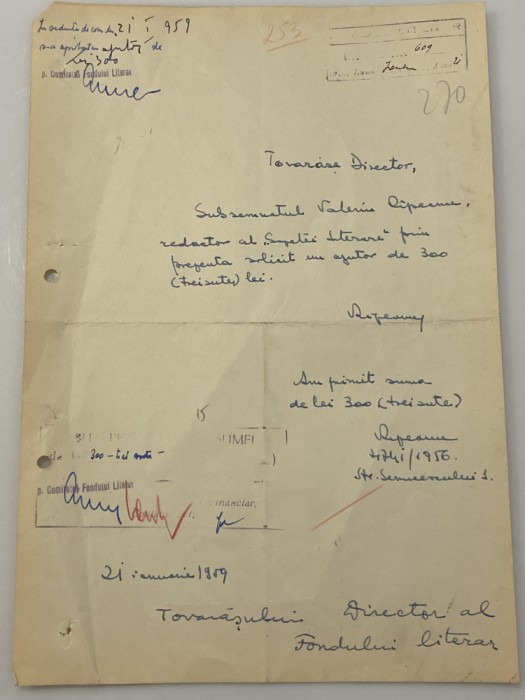 21 I 959
s-a aprobat un ajutor de
lei 300
p. Comitetul Fondului Literar
253
609
21
270
Tovarășe Director,
Subsemnatul Valeriu Rîpeanu,
redactor al „Gazetei literare" prin
prezenta solicit un ajutor de 300
(treisute) lei.
Rîpeanu
Am primit suma
de lei 300 (treisute)
Rîpeanu
Str.
15
BU
SUMEI
300 – trei sute –
p. Comitetul Fondului Literar
financiar,
21 ianuarie 1959
Tovarășului Director al
Fondului literar